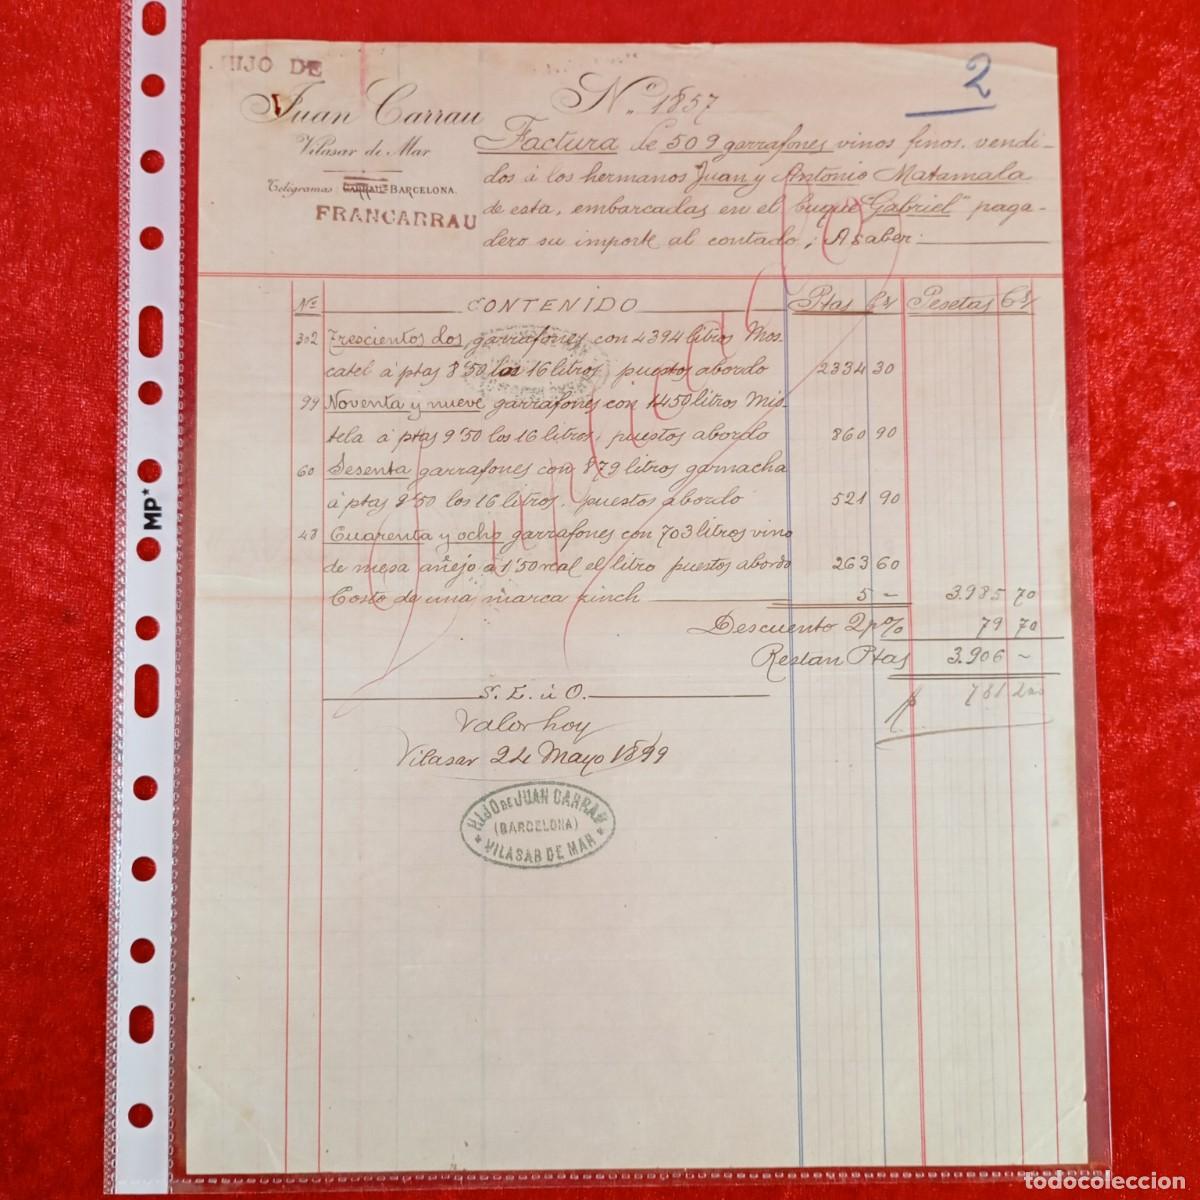 HIJO DE
Juan Carrau
Vilasar de Mar
Telégramas: CARRAU-BARCELONA.
FRANCARRAU
Nº 1857
2
Factura de 509 garrafones vinos finos, vendi-
dos á los hermanos Juan y Antonio Matamala
de esta, embarcadas en el buque "Gabriel" paga-
dero su importe al contado; A saber:
Nº CONTENIDO Ptas Cs Pesetas Cs
302 Trescientos dos garrafones con 4394 litros Mos-
catel á ptas 8'50 los 16 litros puestos abordo 2334 30
99 Noventa y nueve garrafones con 1450 litros Mis-
tela á ptas 9'50 los 16 litros, puestos abordo 860 90
60 Sesenta garrafones con 879 litros garnacha
á ptas 9'50 los 16 litros, puestos abordo 521 90
48 Cuarenta y ocho garrafones con 703 litros vino
de mesa añejo á 1'50 real el litro puestos abordo 263 60
Costo de una marca zinch 5 - 3.985 70
Descuento 2 p% 79 70
Restan Ptas 3.906 -
781
S. E. ú O.
Valor hoy
Vilasar 24 Mayo 1899
HIJO DE JUAN CARRAU
(BARCELONA)
* VILASAR DE MAR *
MP*
todocoleccion